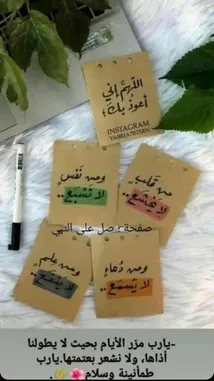 اللهم إني
أعوذ بك
INSTAGRAM
من قلب
لا يخشع..
ومن نفس
لا تشبع..
صفحة ؛ صل على النبي
ومن دعاء
لا يسمع..
ومن علم
لا ينفع..
-يارب مرّر الأيام بحيث لا يطولنا
أذاها، ولا نشعر بعتمتها.يارب
طمأنينة وسلام🌸🌾.